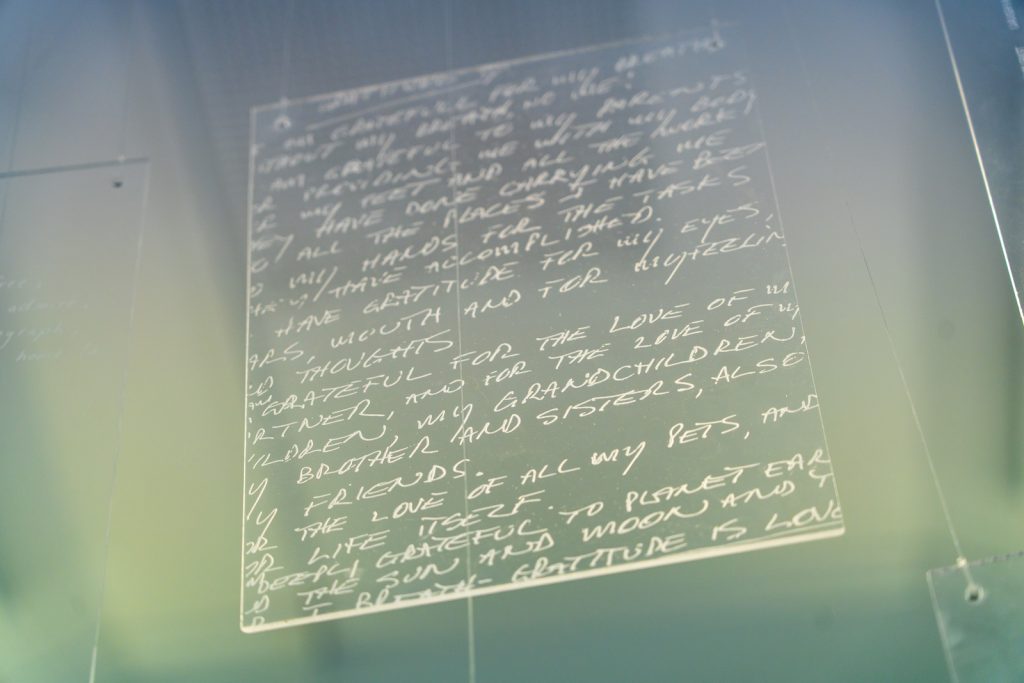 GRATITUDE
AM GRATEFUL FOR MY BREATH
THOUT MY BREATH NO LIFE!
AM GRATEFUL TO MY PARENTS
R PROVIDING ME WITH MY BODY
R MY FEET AND ALL THE WORK
EY HAVE DONE CARRYING ME
O ALL THE PLACES I HAVE BEEN
MY HANDS FOR THE TASKS
HAVE ACCOMPLISHED.
HAVE GRATITUDE FOR MY EYES,
ARS, MOUTH AND FOR MY FEELIN
THOUGHTS
GRATEFUL FOR THE LOVE OF M
RTNER, AND FOR THE LOVE OF M
ILDREN, MY GRANDCHILDREN,
Y BROTHER AND SISTERS, ALSO
Y FRIENDS.
OR THE LOVE OF ALL MY PETS, AND
OR LIFE ITSELF.
DEEPLY GRATEFUL TO PLANET EAR
D THE SUN AND MOON AND T
I BREATH- GRATITUDE IS LOVE